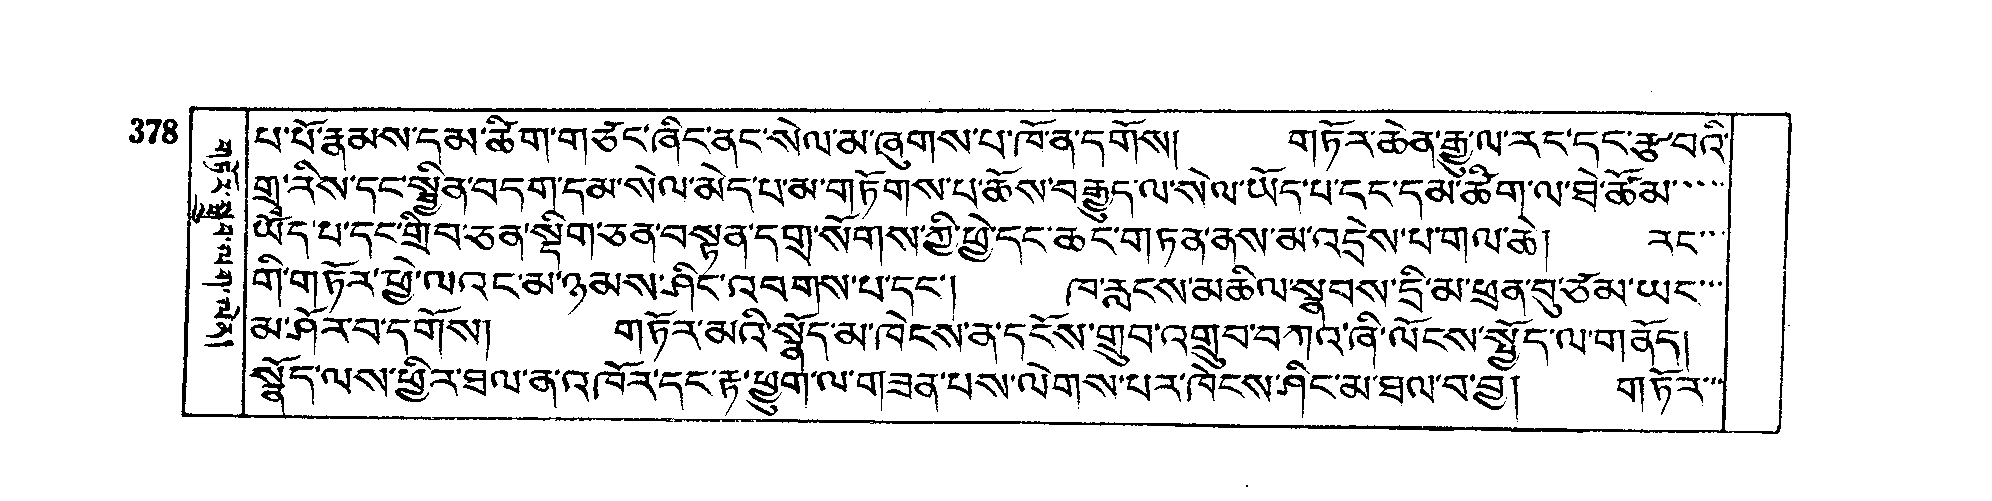 378
གཏོར་སྒྲུབ་ལག་ལེན།
པ་པོ་རྣམས་དམ་ཚིག་གཙང་ཞིང་ནང་སེལ་མ་ཞུགས་པ་ཁོ་ན་དགོས། གཏོར་ཆེན་རྒྱུ་ལ་རང་དང་རྩ་བའི་
གྲྭ་རིས་དང་སྦྱིན་བདག་དམ་སེལ་མེད་པ་མ་གཏོགས་པ་ཆོས་བརྒྱུད་ལ་སེལ་ཡོད་པ་དང་དམ་ཚིག་ལ་ཐེ་ཚོམ་····
ཡོད་པ་དང་གྲིབ་ཅན་སྡིག་ཅན་བསྟན་དགྲ་སོགས་ཀྱི་ཕྱེ་དང་ཆང་གཏན་ནས་མ་འདྲེས་པ་གལ་ཆེ། རང་···
གི་གཏོར་ཕྱེ་ལའང་མ་ཉམས་ཤིང་འབགས་པ་དང་། ཁ་རླངས་མཆིལ་སྣབས་དྲི་མ་ཕྲན་བུ་ཙམ་ཡང་···
མ་ཤོར་བ་དགོས། གཏོར་མའི་སྣོད་མ་ཁེངས་ན་དངོས་གྲུབ་འགྲུབ་བཀའ་ཞི་ལོངས་སྤྱོད་ལ་གནོད།
སྣོད་ལས་ཕྱིར་ཐལ་ན་འཁོར་དང་རྟ་ཕྱུག་ལ་གཟན་པས་ལེགས་པར་ཁེངས་ཤིང་མ་ཐལ་བ་བྱ། གཏོར་···